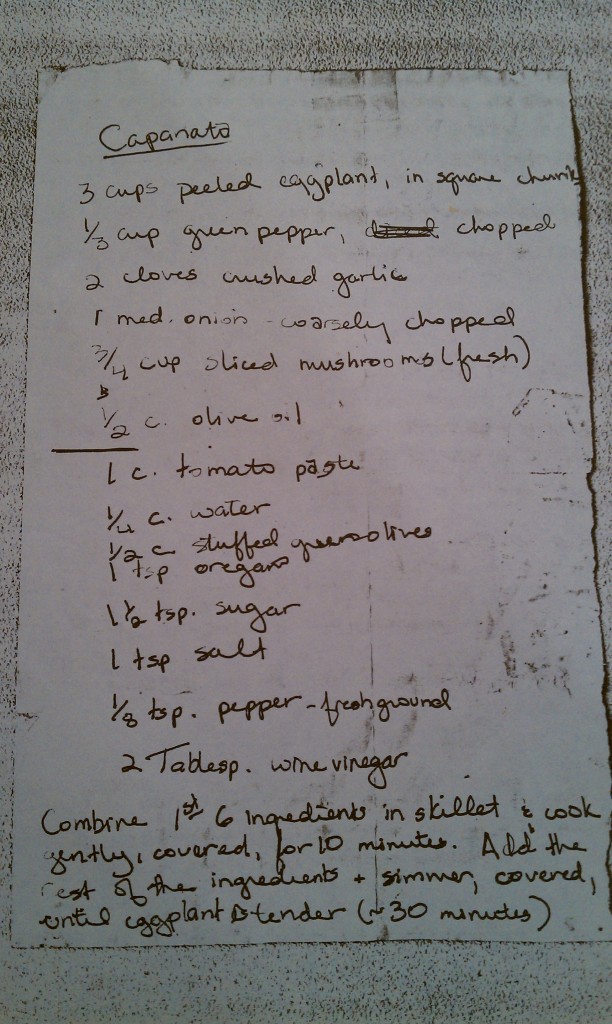 Capanata
3 cups peeled eggplant, in square chunks
1/3 cup green pepper, chopped
2 cloves crushed garlic
1 med. onion - coarsely chopped
3/4 cup sliced mushrooms (fresh)
1/2 c. olive oil
1 c. tomato paste
1/4 c. water
1/2 c stuffed green olives
1 tsp oregano
1 1/2 tsp. sugar
1 tsp salt
1/8 tsp. pepper - fresh ground
2 Tablesp. wine vinegar
Combine 1st 6 ingredients in skillet & cook
gently, covered, for 10 minutes. Add the
rest of the ingredients + simmer, covered,
until eggplant is tender (~30 minutes)